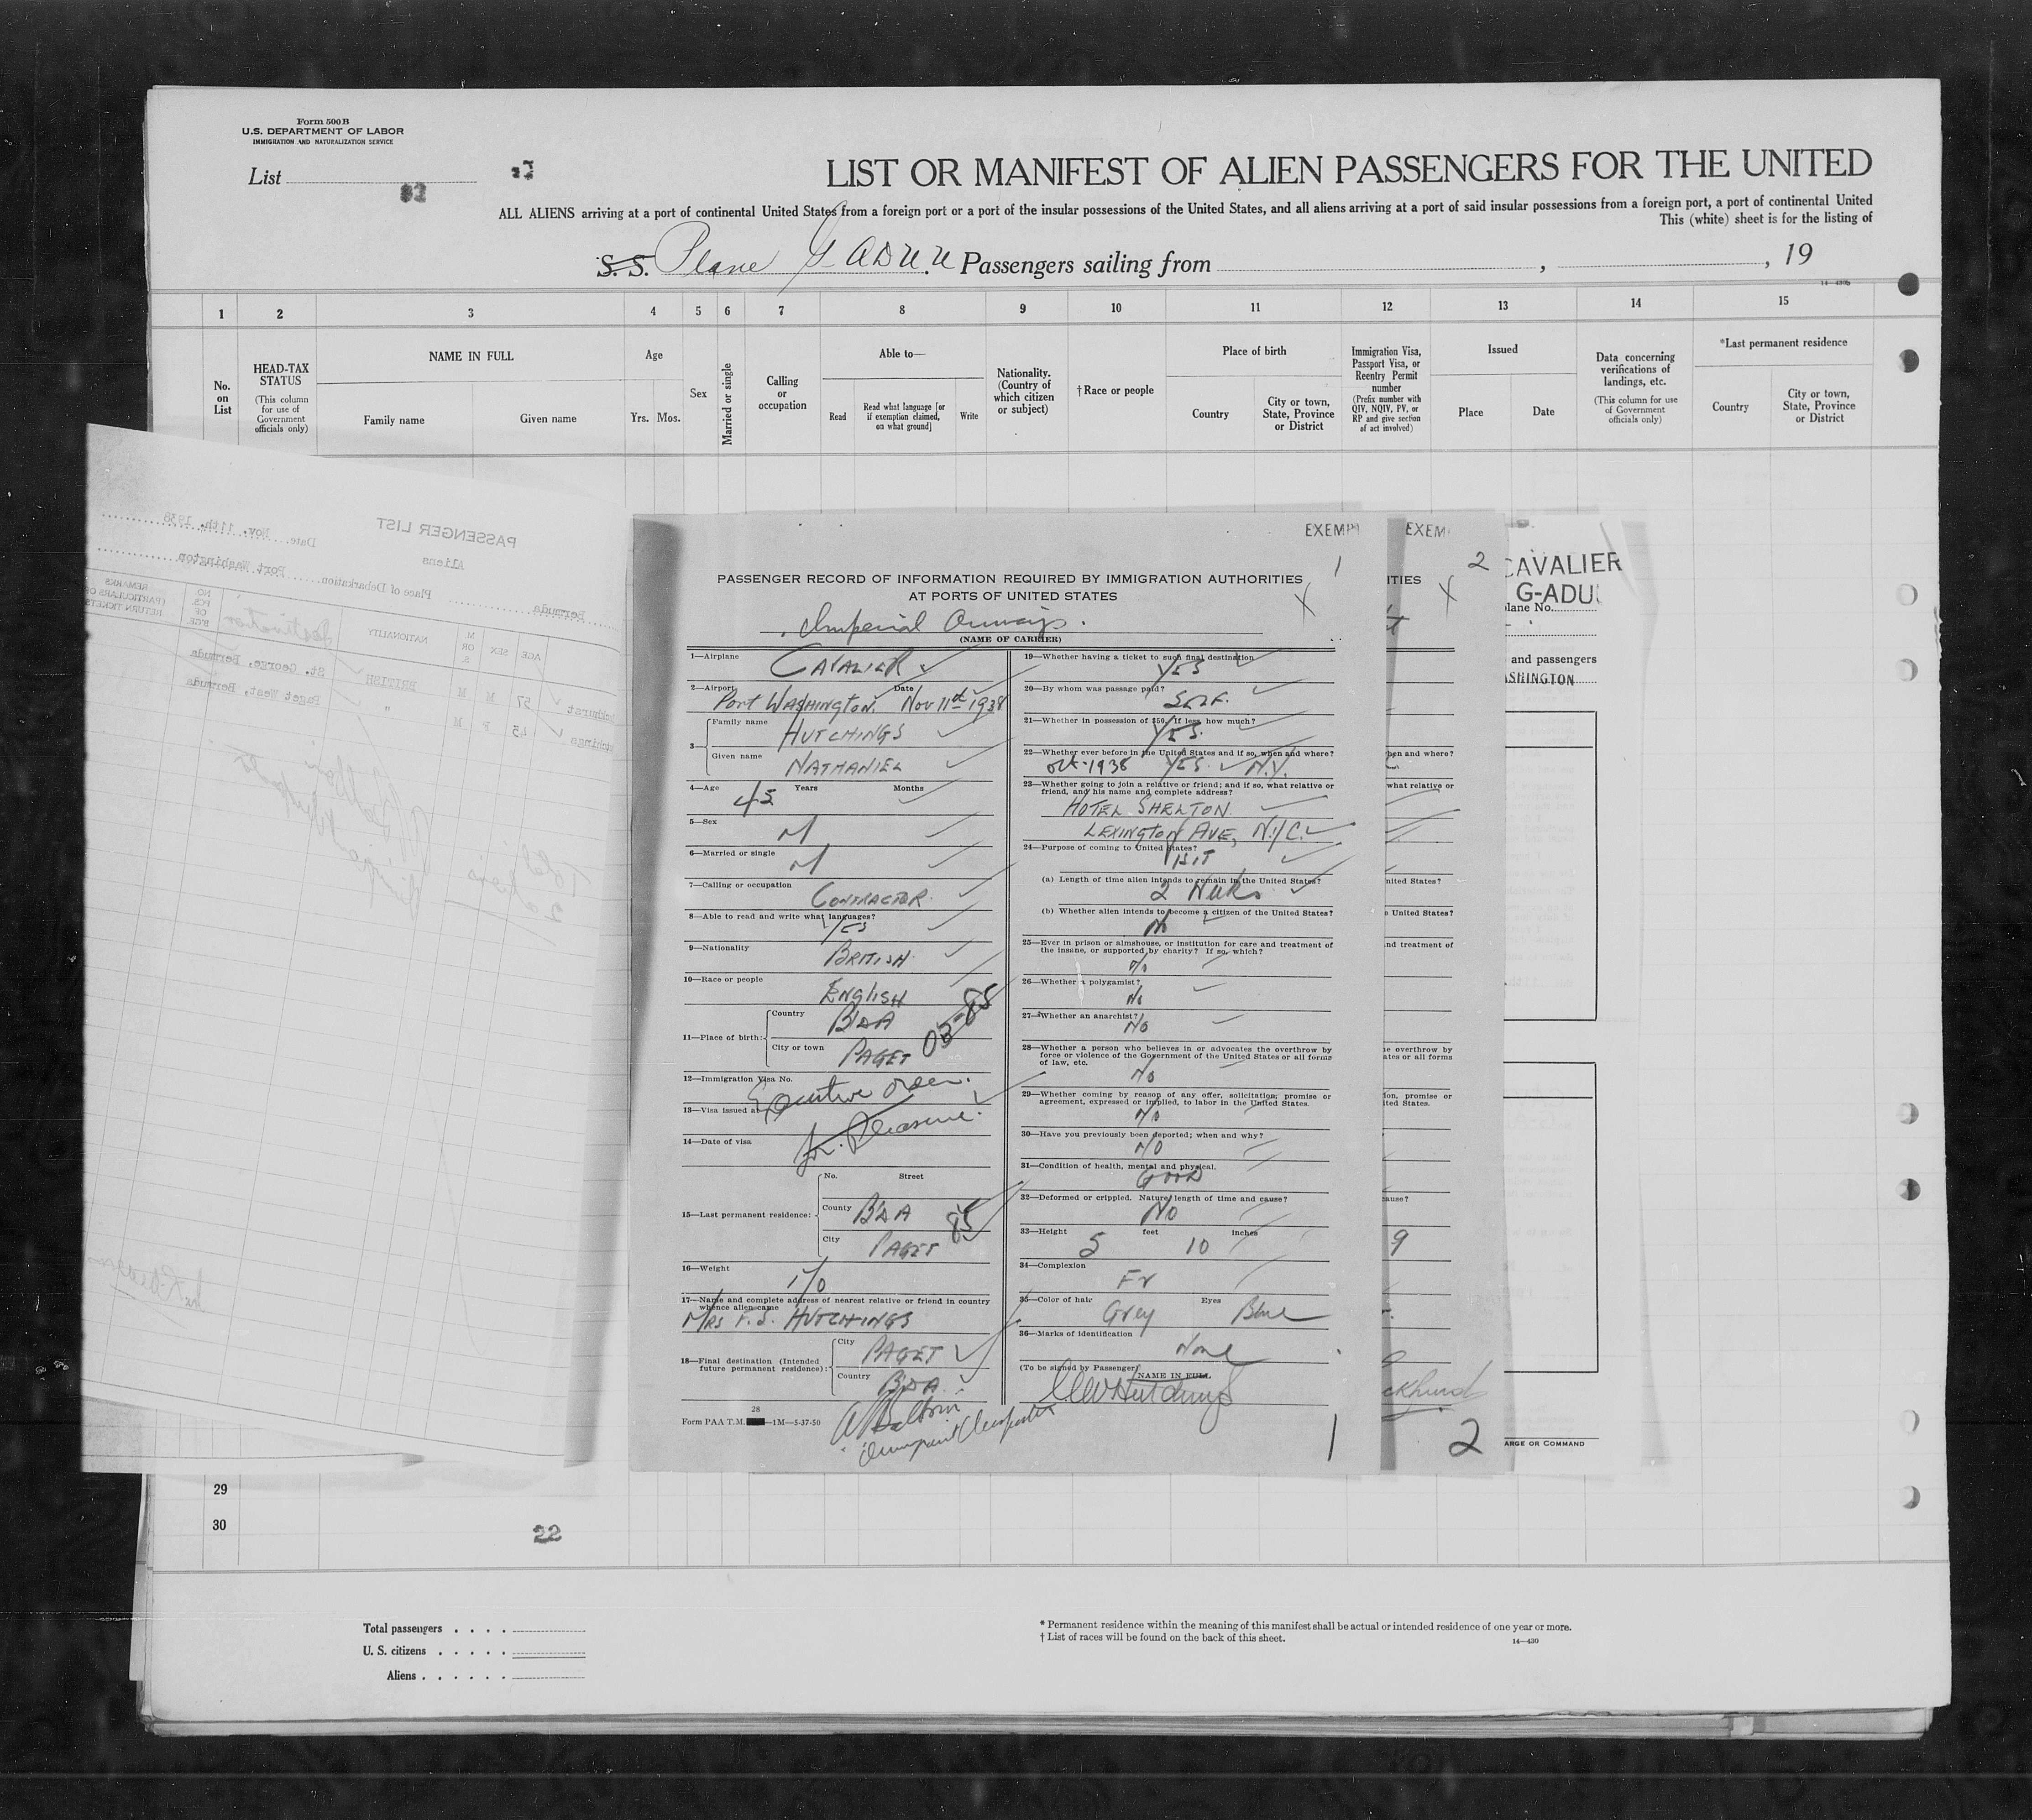 Form 500 B
U.S. DEPARTMENT OF LABOR
IMMIGRATION AND NATURALIZATION SERVICE
List
LIST OR MANIFEST OF ALIEN PASSENGERS FOR THE UNITED
ALL ALIENS arriving at a port of continental United States from a foreign port or a port of the insular possessions of the United States, and all aliens arriving at a port of said insular possessions from a foreign port, a port of continental United
This (white) sheet is for the listing of
S. S. Plane G ADUU Passengers sailing from , , 19
14—430b
1 2 3 4 5 6 7 8 9 10 11 12 13 14 15
No. on List
HEAD-TAX STATUS
(This column for use of Government officials only)
NAME IN FULL
Family name Given name
Age
Yrs. Mos.
Sex
Married or single
Calling or occupation
Able to—
Read
Read what language [or if exemption claimed, on what ground]
Write
Nationality. (Country of which citizen or subject)
† Race or people
Place of birth
Country
City or town, State, Province or District
Immigration Visa, Passport Visa, or Reentry Permit number
(Prefix number with QIV, NQIV, PV, or RP and give section of act involved)
Issued
Place Date
Data concerning verifications of landings, etc.
(This column for use of Government officials only)
*Last permanent residence
Country
City or town, State, Province or District
PASSENGER LIST
Aliens
Date. Nov. 11th. 1938
Bermuda Place of Debarkation Port Washington
AGE SEX M. OR S. NATIONALITY Destination NO. PCS. OF B'G'E REMARKS
(PARTICULARS OF RETURN TICKETS
57 M M BRITISH St. George, Bermuda
45 F M " Paget West, Bermuda
EXEMP
1
PASSENGER RECORD OF INFORMATION REQUIRED BY IMMIGRATION AUTHORITIES
AT PORTS OF UNITED STATES
X
Imperial Airways.
(NAME OF CARRIER)
1—Airplane CAVALIER
2—Airport Port WASHINGTON. Date Nov 11th 1938
3— Family name HUTCHINGS
Given name NATHANIEL
4—Age 45 Years Months
5—Sex M
6—Married or single M
7—Calling or occupation CONTRACTOR
8—Able to read and write what languages? YES
9—Nationality BRITISH
10—Race or people ENGLISH
11—Place of birth: Country B'DA
City or town PAGET 03-85
12—Immigration Visa No. Executive order.
13—Visa issued at
14—Date of visa for Pleasure.
15—Last permanent residence: No. Street
County B'DA 85
City PAGET
16—Weight 170
17—Name and complete address of nearest relative or friend in country whence alien came
MRS F. S. HUTCHINGS
18—Final destination (Intended future permanent residence): City PAGET
Country B'DA
28
Form PAA T.M. —1M—5-37-50
19—Whether having a ticket to such final destination YES
20—By whom was passage paid? SELF.
21—Whether in possession of $50. If less, how much? YES.
22—Whether ever before in the United States and if so, when and where?
Oct-1938 YES. N.Y.
23—Whether going to join a relative or friend; and if so, what relative or friend, and his name and complete address?
HOTEL SHELTON
LEXINGTON AVE, N.Y.C.
24—Purpose of coming to United States?
(a) Length of time alien intends to remain in the United States?
2 Weeks
(b) Whether alien intends to become a citizen of the United States?
No
25—Ever in prison or almshouse, or institution for care and treatment of the insane, or supported by charity? If so, which?
No
26—Whether a polygamist?
No
27—Whether an anarchist?
No
28—Whether a person who believes in or advocates the overthrow by force or violence of the Government of the United States or all forms of law, etc.
No
29—Whether coming by reason of any offer, solicitation, promise or agreement, expressed or implied, to labor in the United States.
No
30—Have you previously been deported; when and why?
NO
31—Condition of health, mental and physical.
GOOD
32—Deformed or crippled. Nature, length of time and cause?
NO
33—Height 5 feet 10 inches
34—Complexion Fr
35—Color of hair Grey Eyes Blue
36—Marks of identification
None
(To be signed by Passenger)
NAME IN FULL
Hutchings
1
EXEM
2
ITIES
X
hen and where?
what relative or
nited States?
e United States?
nd treatment of
e overthrow by
ates or all forms
ion, promise or
ted States.
ause?
9
2
CAVALIER
G-ADU
lane No.
and passengers
ASHINGTON
ARGE OR COMMAND
29
30
22
Total passengers
U. S. citizens
Aliens
* Permanent residence within the meaning of this manifest shall be actual or intended residence of one year or more.
† List of races will be found on the back of this sheet.
14—430